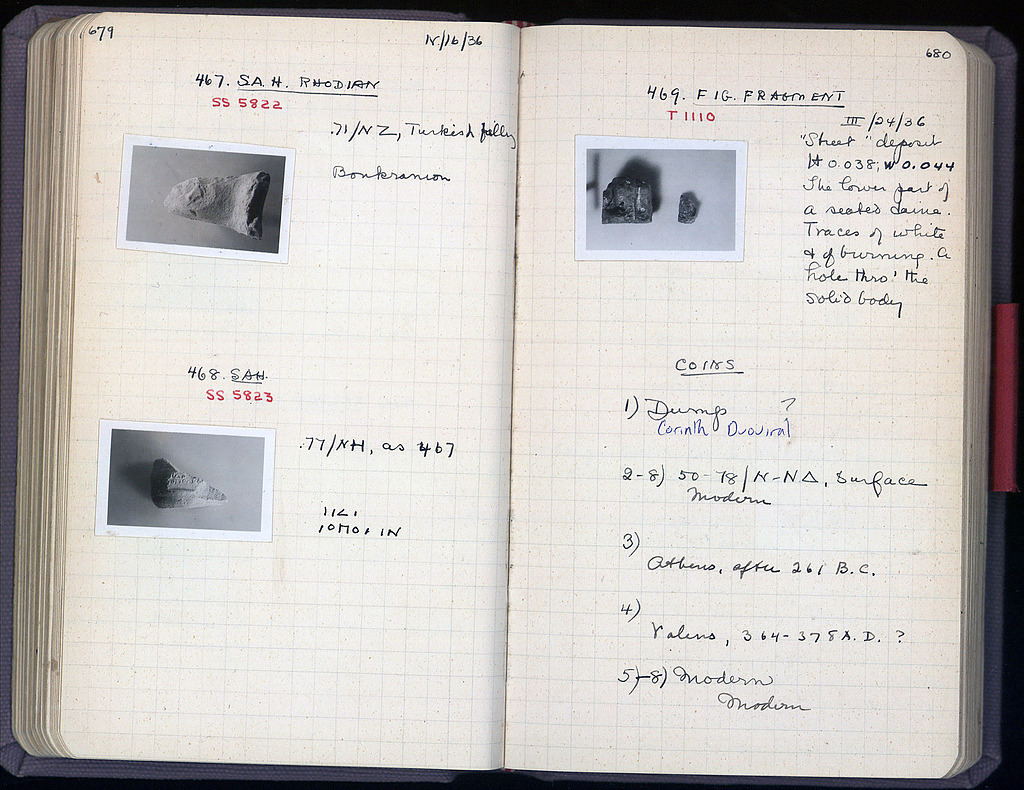 679
IV/16/36
467. SA.H. RHODIAN
SS 5822
.71/NZ, Turkish
Boukranion
468. SAH.
SS 5823
.77/NH, as 467
680
469. FIG. FRAGMENT
T 1110
III/24/36
"Street" deposit
H 0.038; W 0.044
The lower part of
a seated
Traces of white
& of burning. A
hole thro' the
solid body
COINS
1) Dump ?
Corinth Duoviral
2-8) 50-78/N-NΔ, Surface
Modern
3)
Athens, after 261 B.C.
4)
Valens, 364-378 A.D. ?
5)-8) Modern
Modern